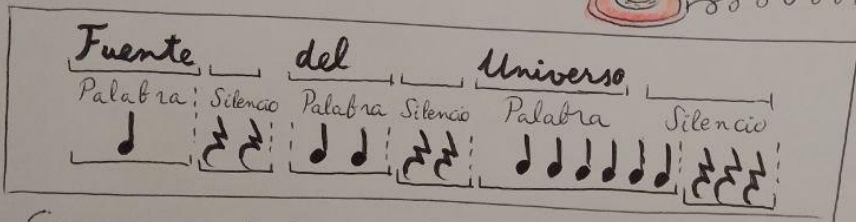 Fuente del Universo
Palabra Silencio Palabra Silencio Palabra Silencio